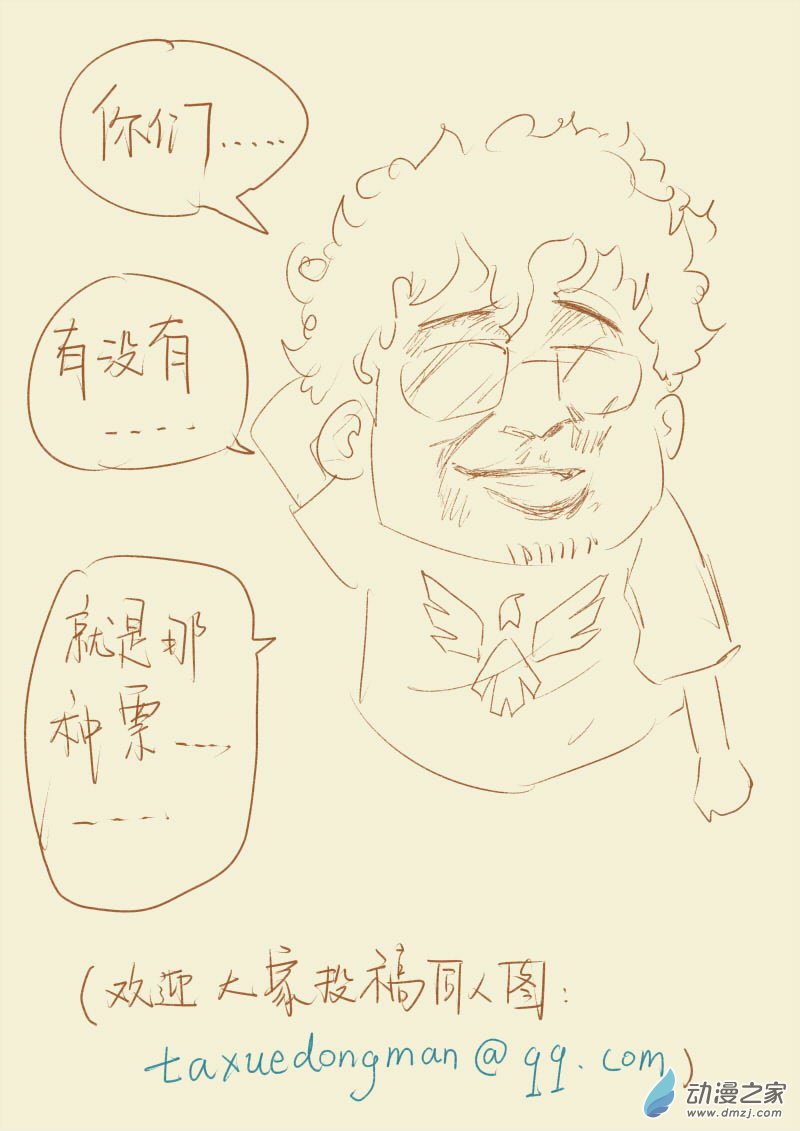 你们......
有没有
----
就是那
种票----
----
(欢迎大家投稿同人图:
taxuedongman@qq.com)
动漫之家
www.dmzj.com